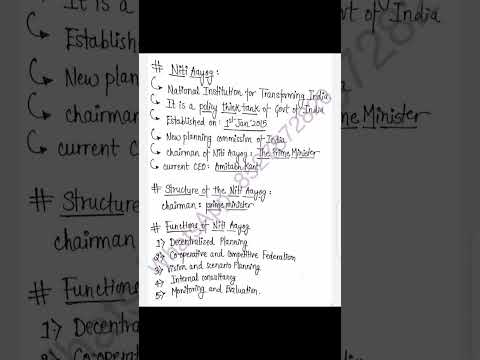 # Niti Aayog :
National Institution for Transforming India
It is a policy think tank of Govt of India
Established on : 1st Jan 2015
New planning commission of India
chairman of Niti Aayog : The Prime Minister
current CEO : Amitabh Kant
# Structure of the Niti Aayog :
chairman : prime minister
# Functions of Niti Aayog
1> Decentralised Planning
2> Co-operative and Competitive Federation
3> Vision and scenario Planning
4> Internal consultancy
5> Monitoring and Evaluation.
It is a
Established
New plan
chairman
current C
# Structure
chairm
# Function
1> Decentra
2> Co-opera
t of India
ime Minister